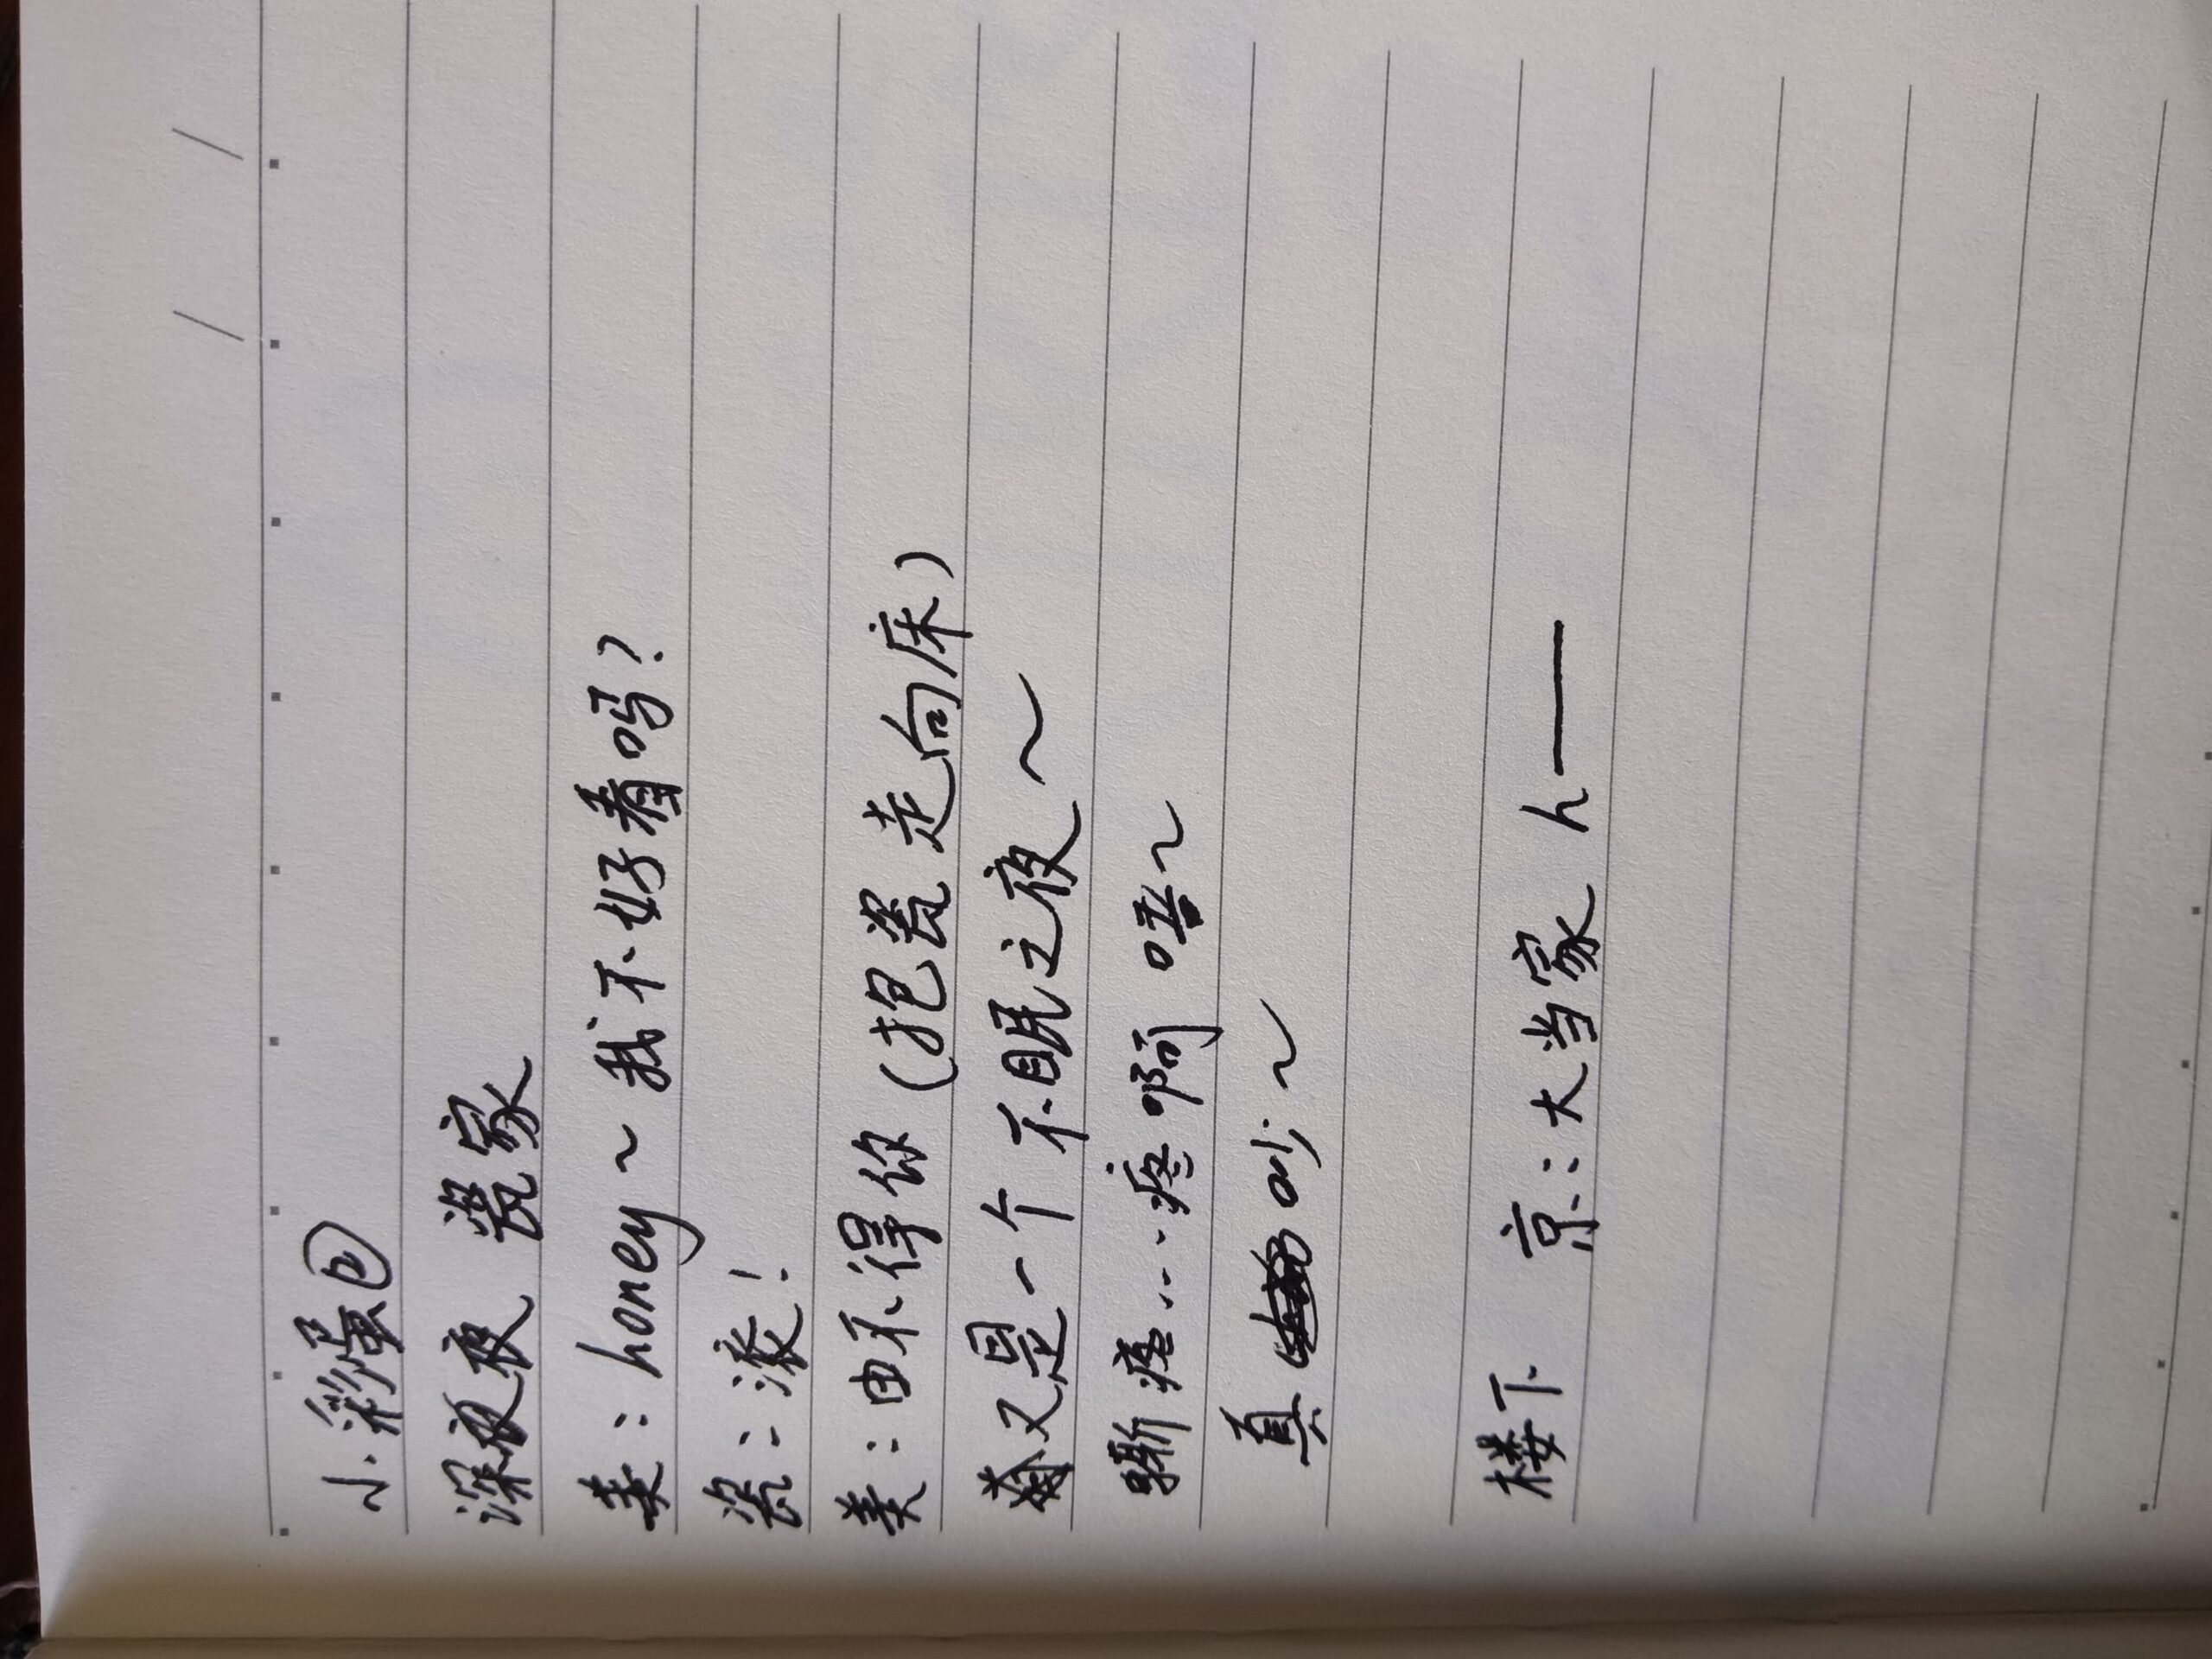 小彩蛋
深夜 瓷家
美：honey～我不好看吗？
瓷：滚！
美：由不得你（抱瓷走向床）
又是一个不眠之夜～
嘶疼……疼啊唔～
真吵～
楼下 京：大当家人——